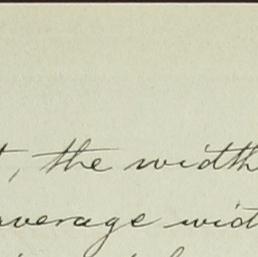 , the width
average wid